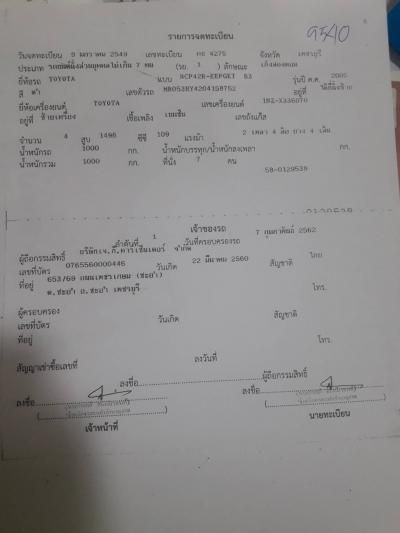 9540
รายการจดทะเบียน
วันจดทะเบียน 9 มกราคม 2549 เลขทะเบียน กธ 4275 จังหวัด เพชรบุรี
ประเภท รถยนต์นั่งส่วนบุคคลไม่เกิน 7 คน (รย. 1 ) ลักษณะ เก๋งสองตอน
ยี่ห้อรถ TOYOTA แบบ NCP42R-EEPGKT B3 รุ่นปี ค.ศ. 2005
สี ดำ เลขตัวรถ MR053HY4204158752 อยู่ที่
ยี่ห้อเครื่องยนต์ TOYOTA เลขเครื่องยนต์ 1NZ-X336070
อยู่ที่ ข้างเครื่อง เชื้อเพลิง เบนซิน เลขถังแก๊ส
จำนวน 4 สูบ 1496 ซีซี 109 แรงม้า 2 เพลา 4 ล้อ ยาง 4 เส้น
น้ำหนักรถ 1000 กก. น้ำหนักบรรทุก/น้ำหนักลงเพลา กก.
น้ำหนักรวม 1000 กก. ที่นั่ง 7 คน
58-0129539
เจ้าของรถ
ลำดับที่ 1 วันที่ครอบครองรถ 7 กุมภาพันธ์ 2562
ผู้ถือกรรมสิทธิ์ บริษัทเจ.ที.คาร์เซ็นเตอร์ จำกัด
เลขที่บัตร 0765560000446 วันเกิด 22 มีนาคม 2560 สัญชาติ ไทย
ที่อยู่ 653/69 ถนนเพชรเกษม (ชะอำ)
ต.ชะอำ อ.ชะอำ เพชรบุรี โทร.
ผู้ครอบครอง
เลขที่บัตร วันเกิด สัญชาติ
ที่อยู่ โทร.
สัญญาเช่าซื้อเลขที่ ลงวันที่
ลงชื่อ ผู้ถือกรรมสิทธิ์
ลงชื่อ ลงชื่อ
เจ้าหน้าที่ นายทะเบียน